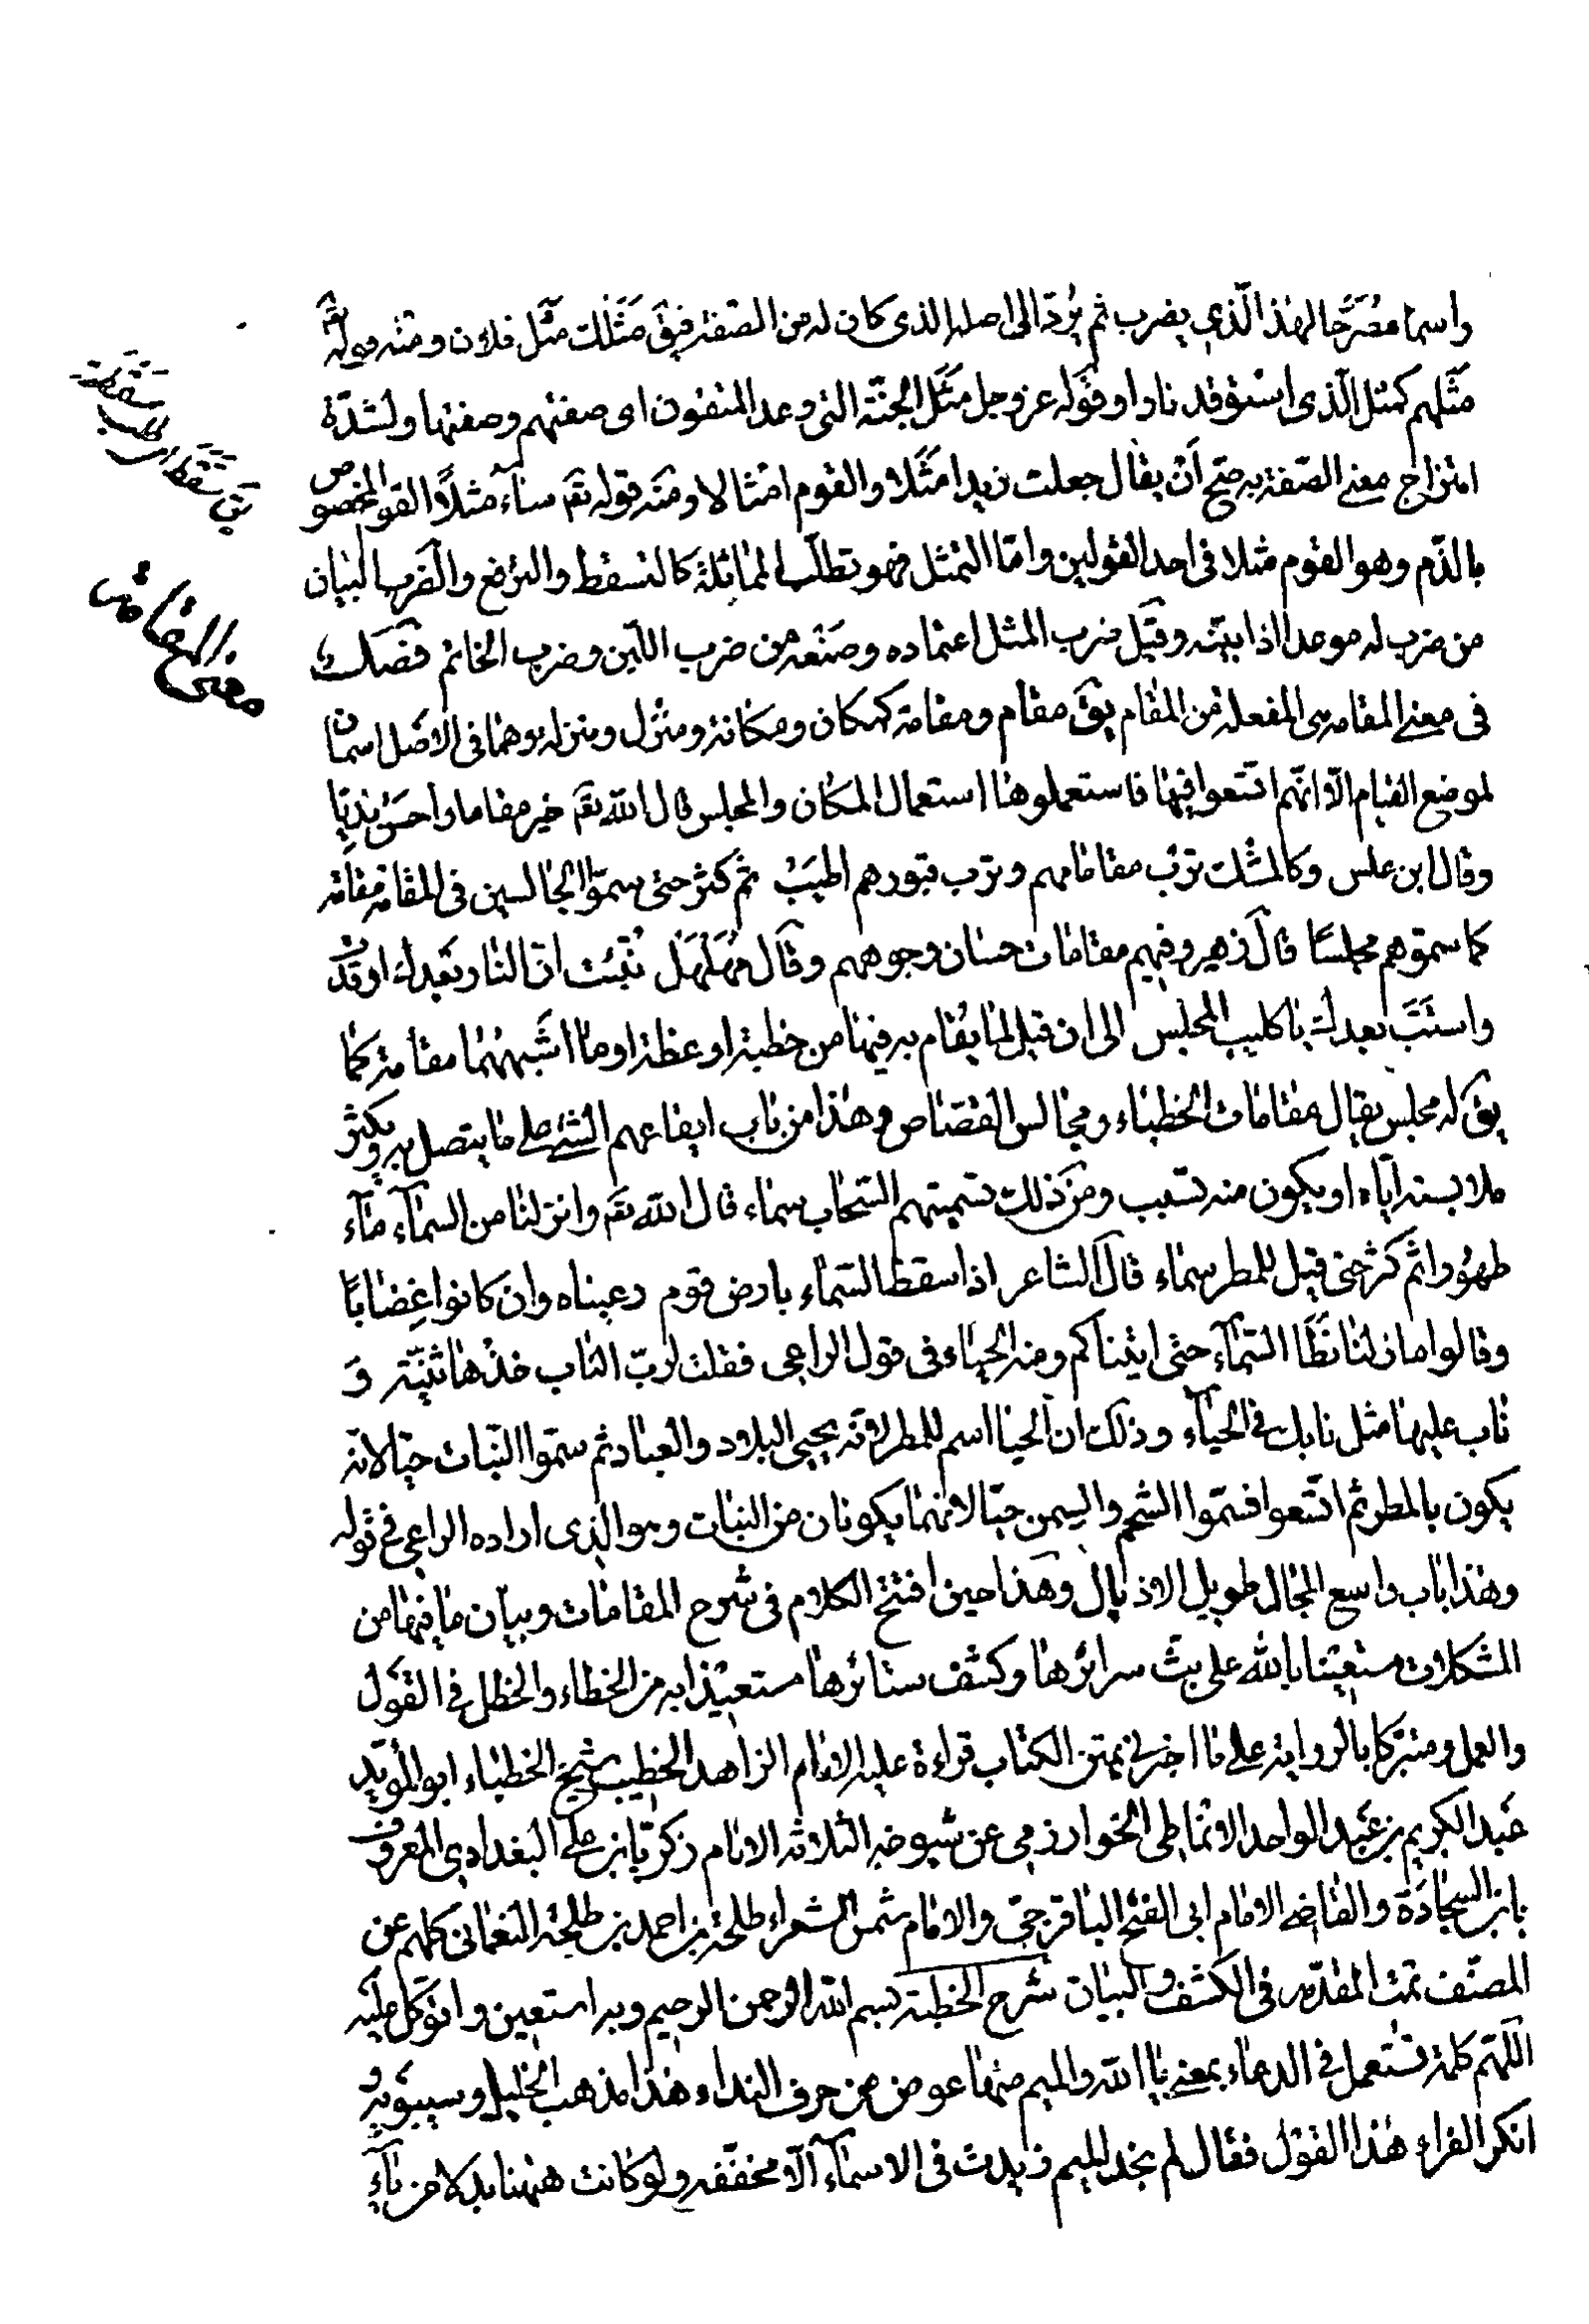 واسما مصرّحا لهذا الّذي يضرب ثم يُردّ الى اصله الذى كان له من الصّفة فيق مَثَلك مثَل فلان ومنه قوله تع
مثَلهم كمثل الّذى استوقد نارا وقوله عز وجل مثَل الجنّة التى وعد المتقون اى صفتهم وصفتها ولشدّة
امتزاج معنى الصّفة به صحّ اَنْ يقال جعلت زيدا مَثَلا والقوم امثالا ومنه قوله تع سآء مثلاً القوم المخصوص
بالذّم وهو القوم مثلا فى احد القولين وامّا التمثل فهو تطلّب المماثلة كالتسقط والترفع والضرب البيان
من ضرب له موعدا اذا بيّنه وقيل ضرب المثل اعتماده وصنعه من ضرب اللبن وضرب الخاتم فصل
فى معنى المقامه هى المفعلة من المقام يق مقام ومقامة كمكان ومكانة ومنزل ومنزله وهما فى الاصل اسمان
لموضع القيام الّا انّهم اتّسعوا فيها فاستعملوها استعمال المكان والمجلس قال الله تع خير مقاما واحسن نديّا
وقال ابن علس وكالمسْك تربُ مقاماتهم وترب قبورهم اطيَبُ ثم كثر حتى سمّوا الجالسين فى المقامة مقامة
كما سموّهم مجلسًا قال زهير وفيهم مقامات حسان وجوههم وقال مهلهل نُبّئت انّ النار بعدك اوقدت
واستَبَّ بعدك يا كليب المجلس الى ان قيل لما يُقام به فيها من خطبة او عظة او ما اشبههما مقامة كما
يق له مجلس يقال مقامات الخطباء ومجالس القصّاص وهذا من باب ايقاعهم الشئ على ما يتصل به ويكثر
ملابسته ايّاه او يكون منه تسبب ومن ذلك تسميتهم السّحاب سماء قال الله تع وانزلنا من السمآء مآء
طهُورا ثم كثر حتى قيل للمطر سماء قال الشاعر اذا سقط السّماء بارض قوم رعيناه وان كانوا غِضابًا
وقالوا ما زلنا نطَأ السّمآء حتى اتيناكم ومنه الحياء فى قول الراعى فقلت لربّ الناب خذها ثنيّة وَ
ناب عليها مثل نابك فى الحيآء وذلك ان الحيا اسم للمطر لانّه يحيى البلاد والعباد ثم سمّوا النّبات حيّا لانّه
يكون بالمطر ثم اتّسعوا فسمّوا الشحم والسِمن حيّا لانهما يكونان من النبات وهو الذى اراده الراعى فى قوله
وهذا باب واسع المجال طويل الاذيال وهذا حين افتتح الكلام فى شرح المقامات وبيان ما فيها من
المشكلات مستعينا بالله على بثّ سرائرها وكشف ستائرها مستعيذا به من الخطاء والخطل فى القول
والعمل ومتبرّكا بالرواية على ما اخبرنى بمتن الكتاب قراءة عليه الامام الزاهد الخطيب شيخ الخطباء ابو المويّد
عَبد الكريم بن عَبد الواحد الانماطى الخوارزمى عن شيوخه الثلاثه الامام زكريّا بن على البغدادى المعروف
بابن السجادَة والقاضى الامام ابى الفتح الباقرجىّ والامام شمس الشعراء طلحة بن احمد بن طلحة النعمانى كلهم عن
المصنّف تمت المقدّمه فى الكشف والبيان شرح الخطبة بسم الله الرحمن الرحيم وبه استعين واتوكّل عليه
اللّهمّ كلمة تستعمل فى الدعاء بمعنى يا الله والميم منها عوض من حرف النداء هذا مذهب الخليل وسيبويه و
انكر الفراء هذا القول فقال لم نجد الميم زيدت فى الاسمآء الّا مخفّفه ولو كانت ههنا بدلا من يآء
معنى المقامات